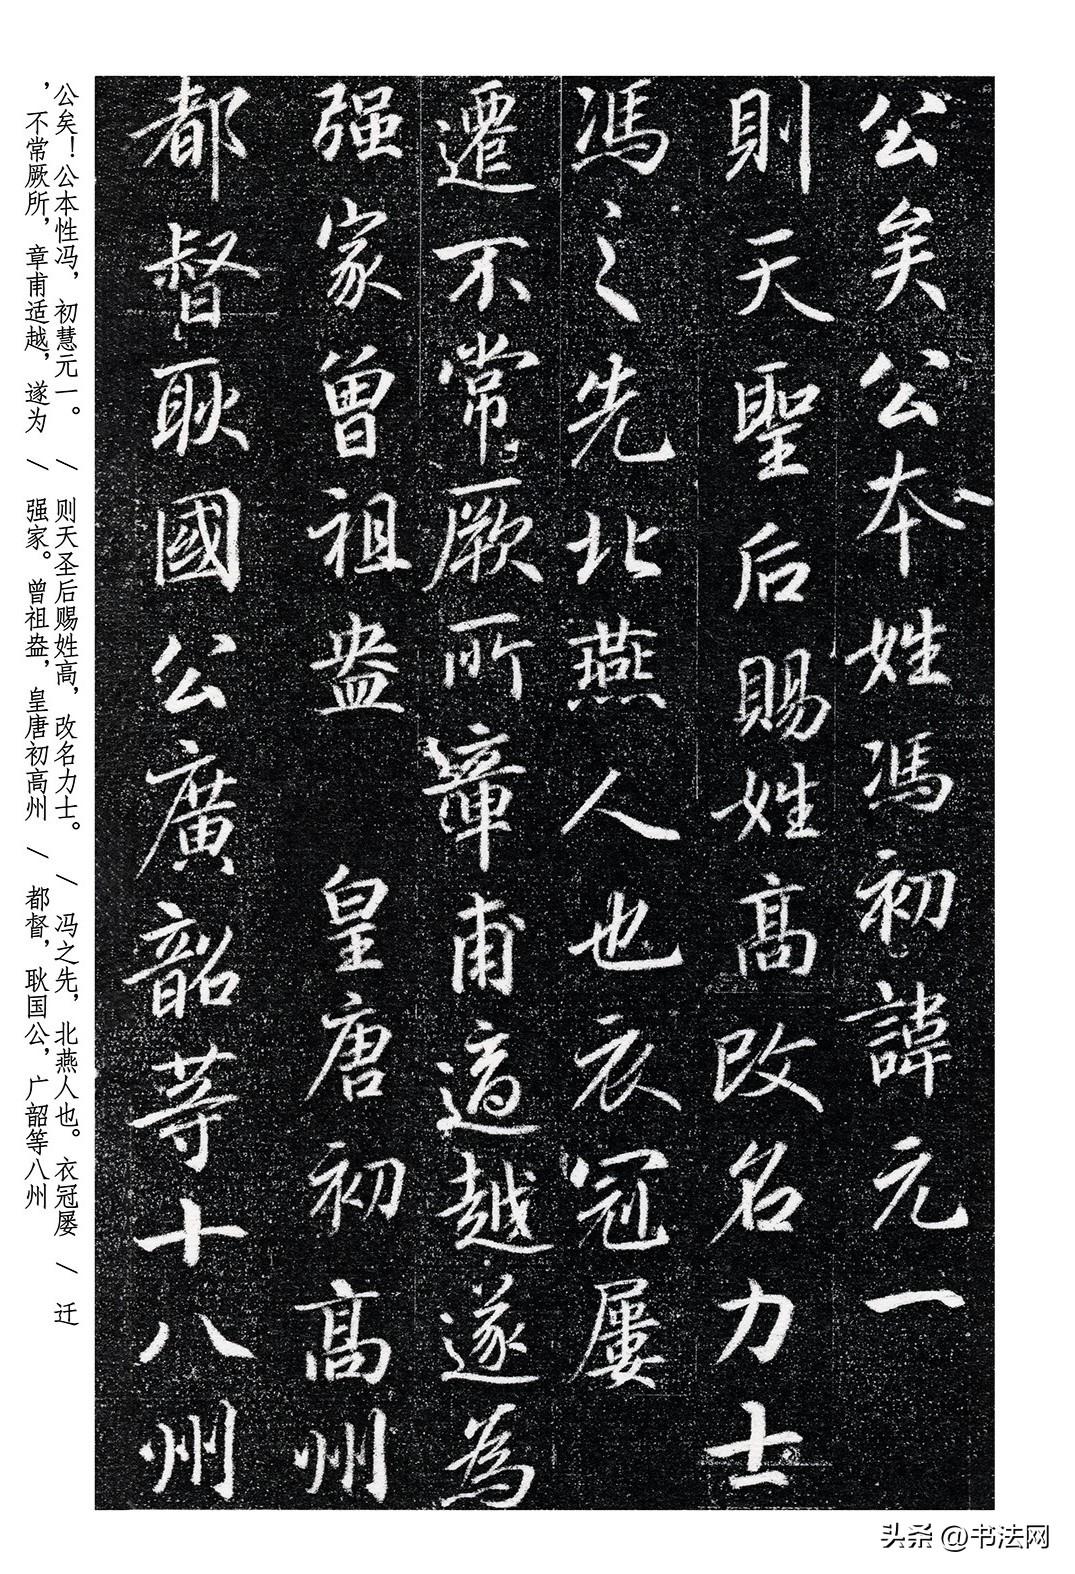 公矣公本姓馮初諱元一
則天聖后賜姓高改名力士
馮之先北燕人也衣冠屢
遷不常厥所章甫適越遂為
强家曾祖盎 皇唐初高州
都督耿國公廣韶等十八州
公矣！公本性冯，初慧元一。 / 则天圣后赐姓高，改名力士。 / 冯之先，北燕人也。衣冠屡 / 迁
，不常厥所，章甫适越，遂为 / 强家。曾祖盎，皇唐初高州 / 都督，耿国公，广韶等八州
头条 @书法网